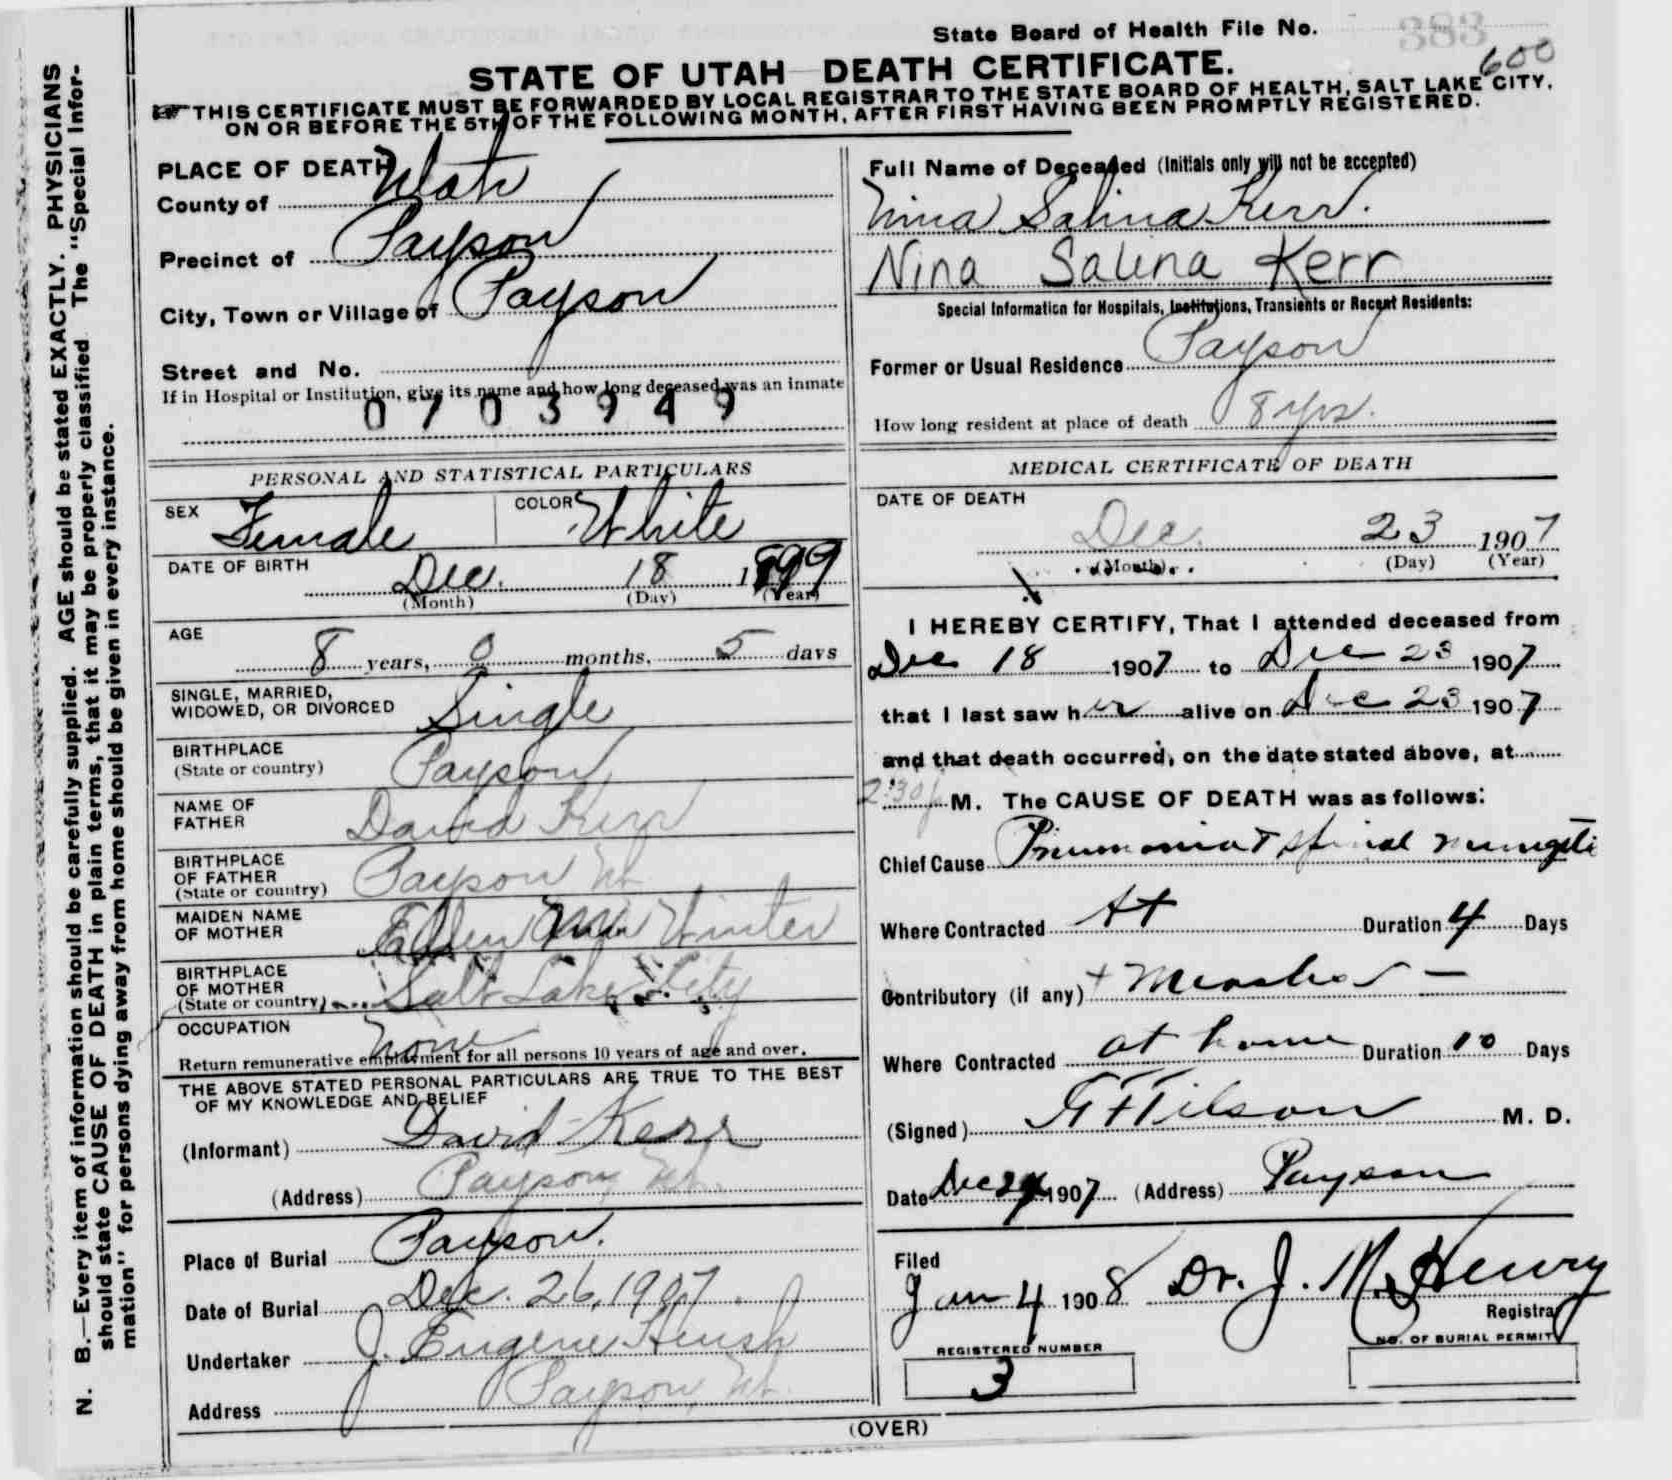 State Board of Health File No.
383
600
STATE OF UTAH DEATH CERTIFICATE.
THIS CERTIFICATE MUST BE FORWARDED BY LOCAL REGISTRAR TO THE STATE BOARD OF HEALTH, SALT LAKE CITY,
ON OR BEFORE THE 5TH OF THE FOLLOWING MONTH, AFTER FIRST HAVING BEEN PROMPTLY REGISTERED.
N. B.—Every item of information should be carefully supplied. AGE should be stated EXACTLY. PHYSICIANS
should state CAUSE OF DEATH in plain terms, that it may be properly classified The "Special Infor-
mation" for persons dying away from home should be given in every instance.
PLACE OF DEATH
County of Utah
Precinct of Payson
City, Town or Village of Payson
Street and No.
If in Hospital or Institution, give its name and how long deceased was an inmate
0703949
PERSONAL AND STATISTICAL PARTICULARS
SEX Female COLOR White
DATE OF BIRTH Dec. 18 1899
(Month) (Day) (Year)
AGE
8 years, 0 months, 5 days
SINGLE, MARRIED,
WIDOWED, OR DIVORCED Single
BIRTHPLACE
(State or country) Payson
NAME OF
FATHER David Kerr
BIRTHPLACE
OF FATHER
(State or country) Payson Ut.
MAIDEN NAME
OF MOTHER Ellen Ann Winter
BIRTHPLACE
OF MOTHER
(State or country) Salt Lake City
OCCUPATION None
Return remunerative employment for all persons 10 years of age and over.
THE ABOVE STATED PERSONAL PARTICULARS ARE TRUE TO THE BEST
OF MY KNOWLEDGE AND BELIEF
(Informant) David Kerr
(Address) Payson, Ut.
Place of Burial Payson.
Date of Burial Dec. 26, 1907.
Undertaker J. Eugene
Address Payson, Ut.
Full Name of Deceased (Initials only will not be accepted)
Nina Salina Kerr.
Nina Salina Kerr
Special Information for Hospitals, Institutions, Transients or Recent Residents:
Former or Usual Residence Payson
How long resident at place of death 8 yrs.
MEDICAL CERTIFICATE OF DEATH
DATE OF DEATH
Dec. 23 1907
(Month) (Day) (Year)
I HEREBY CERTIFY, That I attended deceased from
Dec 18 1907 to Dec 23 1907
that I last saw her alive on Dec 23 1907
and that death occurred, on the date stated above, at
2:30 p M. The CAUSE OF DEATH was as follows:
Chief Cause Pneumonia + spinal
Where Contracted At Duration 4 Days
Contributory (if any) + Measles –
Where Contracted at home Duration 10 Days
(Signed) Tilson M. D.
Date Dec 24 1907 (Address) Payson
Filed
Jan 4 1908 Dr. J. M. Henry
Registrar
REGISTERED NUMBER
3
NO. OF BURIAL PERMIT
(OVER)